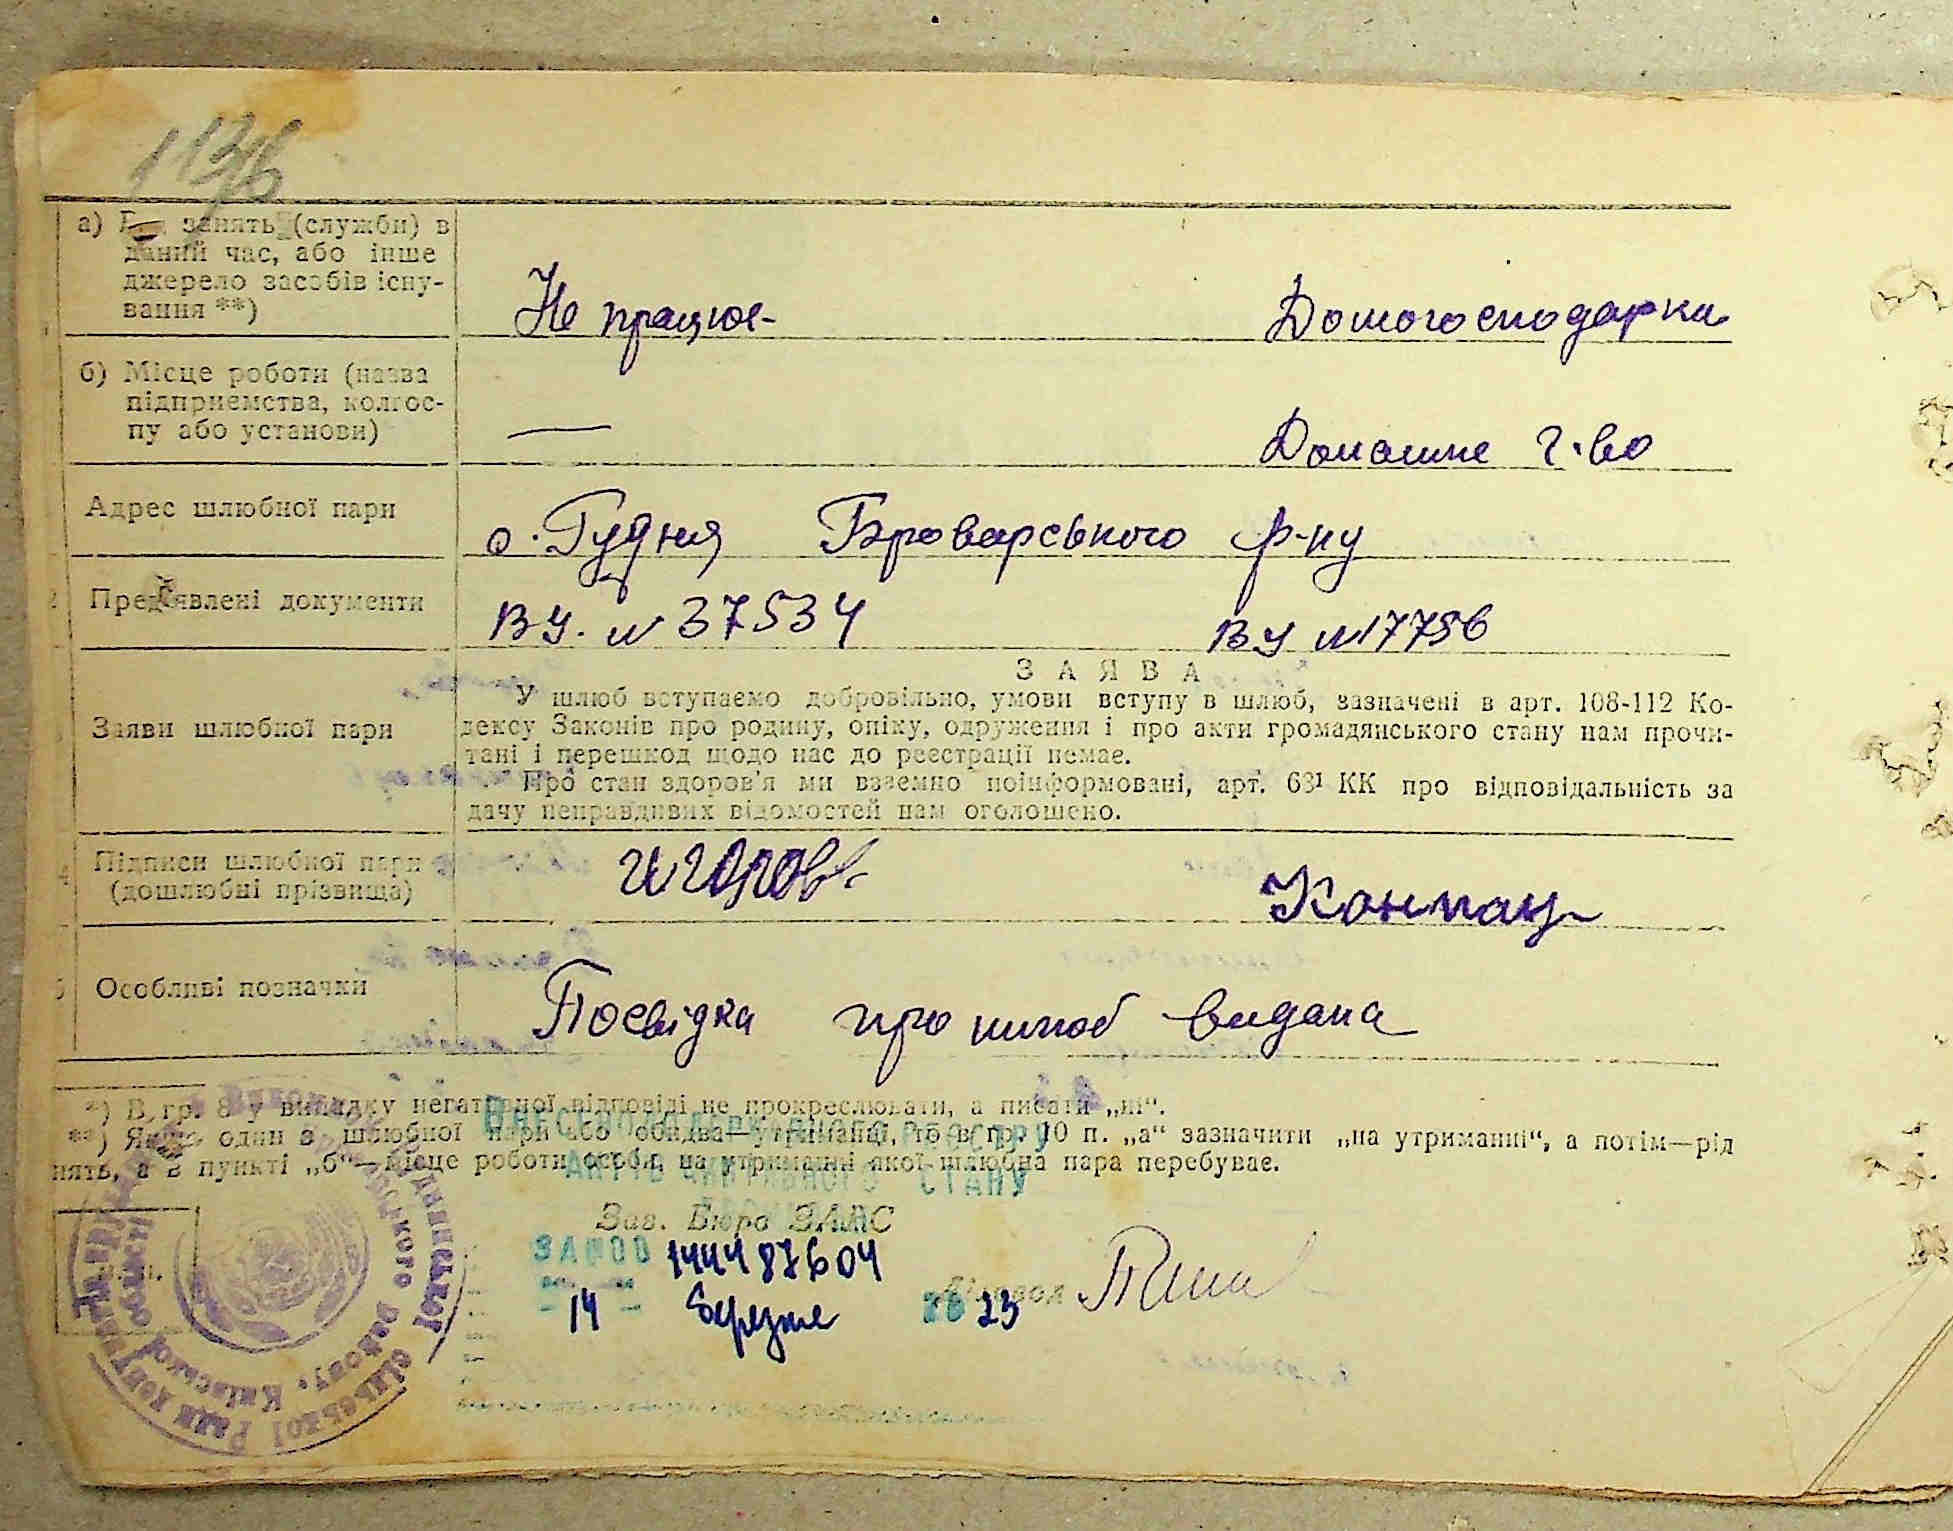 1136
а) Вид занять (служби) в
даний час, або інше
джерело засобів існу-
вання **)
Не працює Домогосподарка
б) Місце роботи (назва
підприємства, колгос-
пу або установи)
— Домашнє г-во
Адрес шлюбної пари
с. Рудня Броварського р-ну
Пред'явлені документи
ВУ. № 37534 ВУ №17756
ЗАЯВА
Заяви шлюбної пари
У шлюб вступаємо добровільно, умови вступу в шлюб, зазначені в арт. 108-112 Ко-
дексу Законів про родину, опіку, одруження і про акти громадянського стану нам прочи-
тані і перешкод щодо нас до реєстрації немає.
Про стан здоров'я ми взаємно поінформовані, арт. 63¹ КК про відповідальність за
дачу неправдивих відомостей нам оголошено.
4 Підписи шлюбної пари
(дошлюбні прізвища)
5 Особливі позначки
Посвідка про шлюб видана
*) В гр. 8 у випадку негативної відповіді не прокреслювати, а писати „ні“.
**) Якщо один з шлюбної пари або обидва—утриманці, то в гр. 10 п. „а“ зазначити „на утриманні“, а потім—рід
нять, а в пункті „б“—місце роботи особи, на утриманні якої шлюбна пара перебуває.
ВНЕСЕНО ДО ДЕРЖАВНОГО РЕЄСТРУ
АКТІВ ЦИВІЛЬНОГО СТАНУ
Зав. Бюро ЗАГС
ЗА №00 144487604
14 березня 2023
Діловод